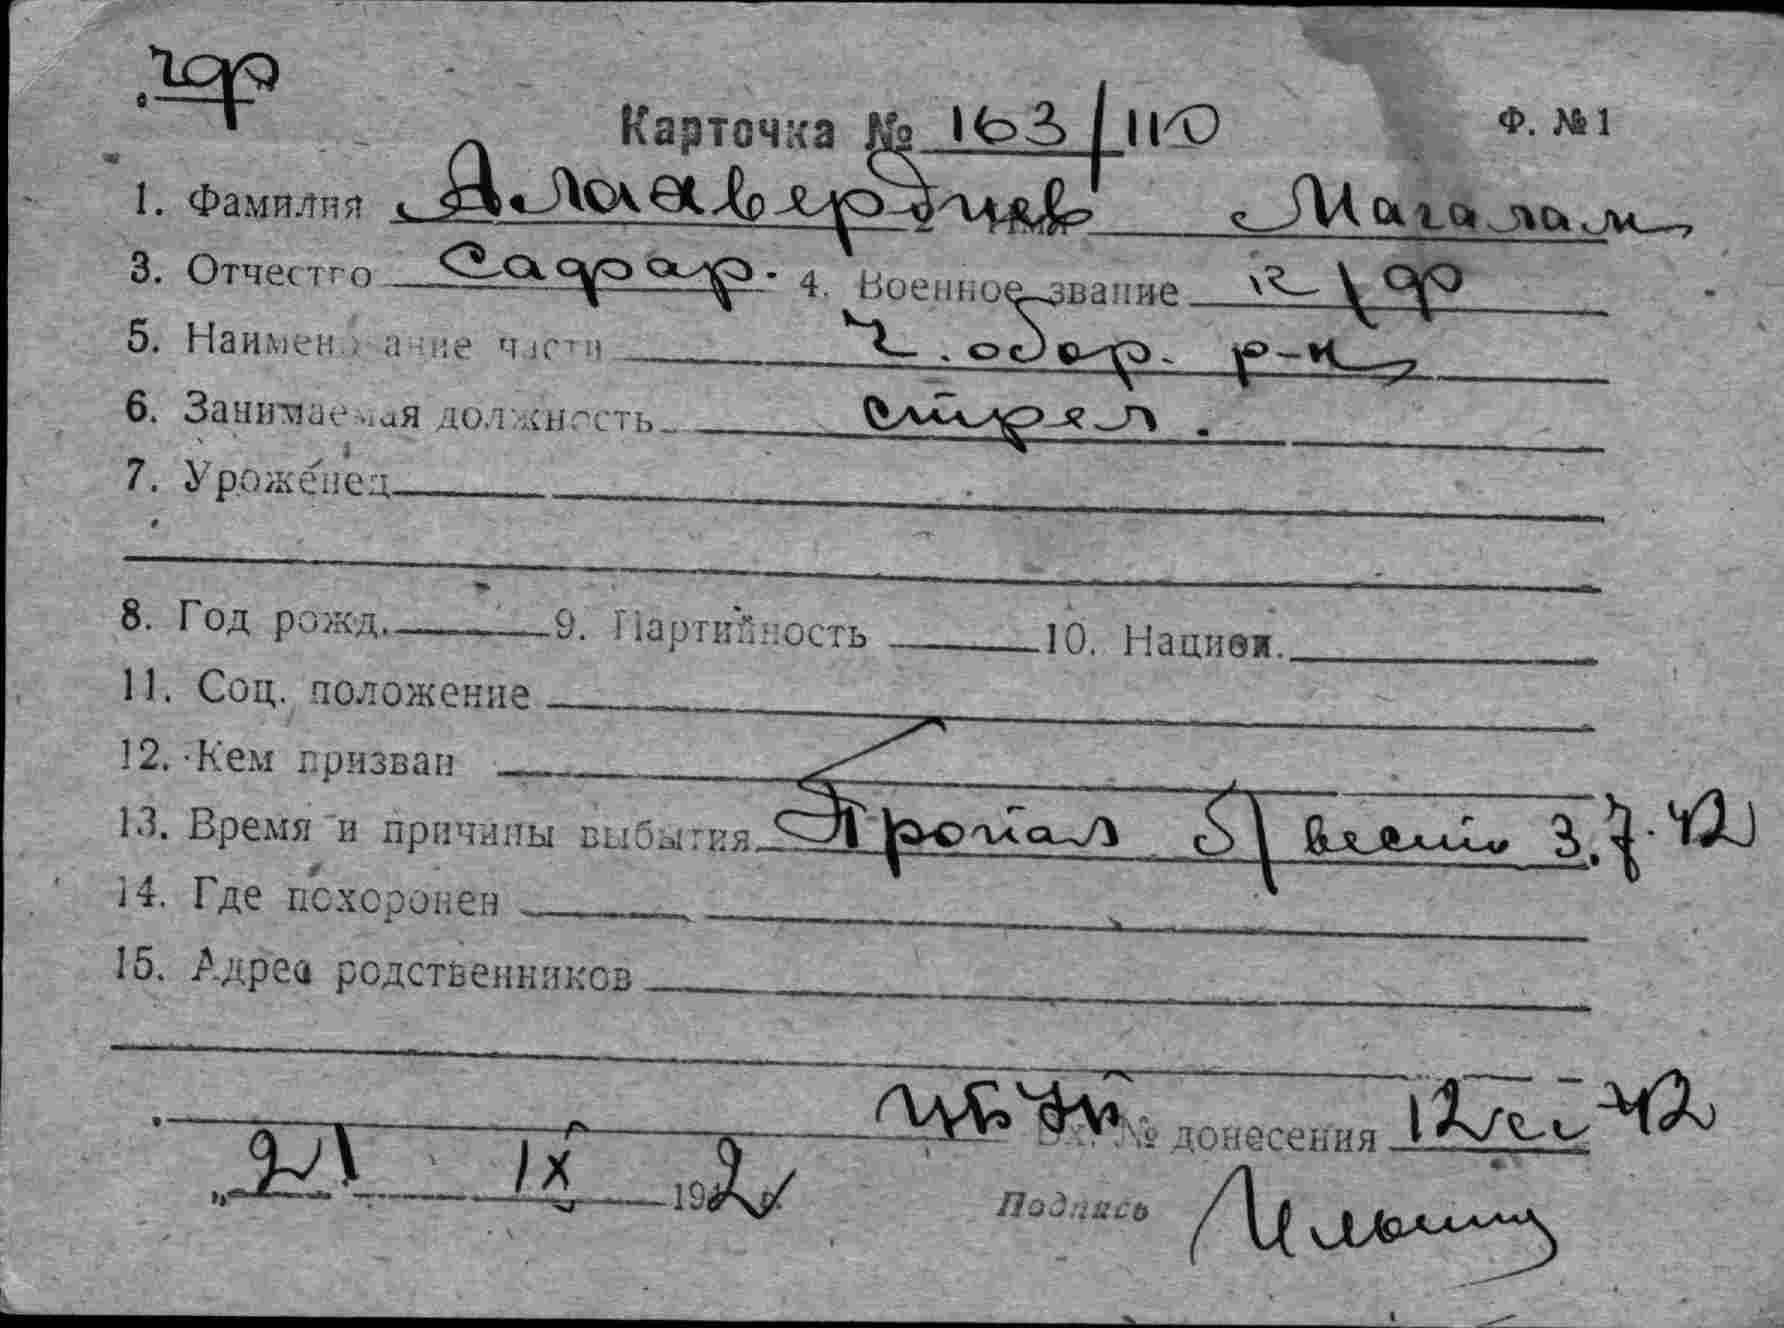 Карточка № 163/110 Ф. № 1
1. Фамилия Алавердиев Магалам
3. Отчество Сафар. 4. Военное звание к/ф
5. Наименование части Ч. обор. р-н
6. Занимаемая должность стрел.
7. Уроженец
8. Год рожд. 9. Партийность 10. Национ.
11. Соц. положение
12. Кем призван
13. Время и причины выбытия Пропал б/вести 3.7.42
14. Где похоронен
15. Адрес родственников
Вх. № донесения 42
„21 IX 1942
Подпись